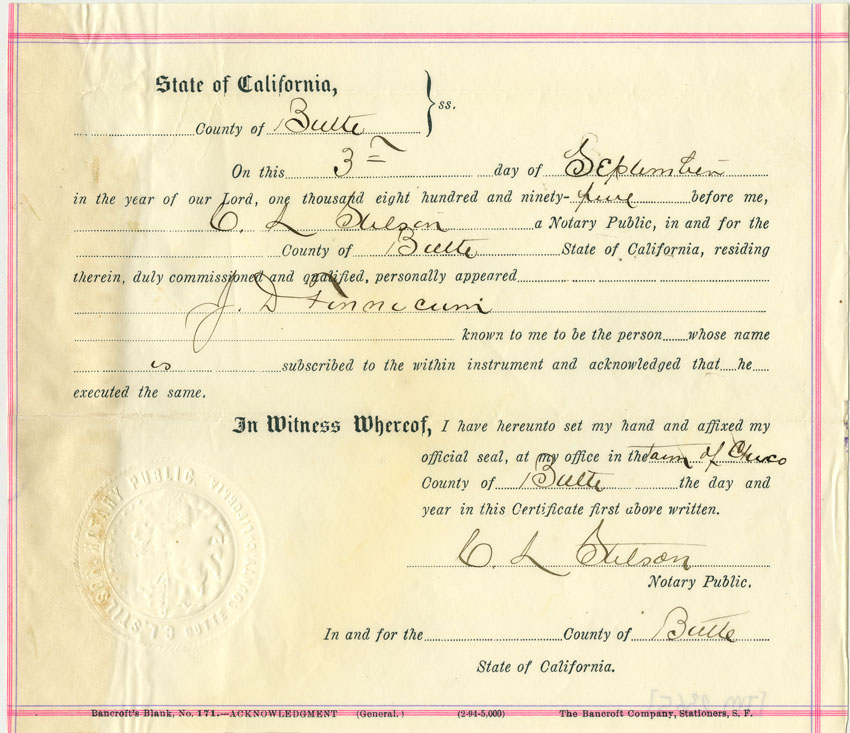 State of California,
ss.
County of Butte
On this 3rd day of September
in the year of our Lord, one thousand eight hundred and ninety-five before me,
C. L. Stilson a Notary Public, in and for the
County of Butte State of California, residing
therein, duly commissioned and qualified, personally appeared
J. D. Finnicum
known to me to be the person whose name
is subscribed to the within instrument and acknowledged that he
executed the same.
In Witness Whereof, I have hereunto set my hand and affixed my
official seal, at my office in the town of Chico
County of Butte the day and
year in this Certificate first above written.
C. L. Stilson
Notary Public.
In and for the County of Butte
State of California.
C. L. STILSON NOTARY PUBLIC.
BUTTE COUNTY CALIFORNIA
Bancroft's Blank, No. 171.—ACKNOWLEDGMENT (General.) (2-94-5,000) The Bancroft Company, Stationers, S. F.